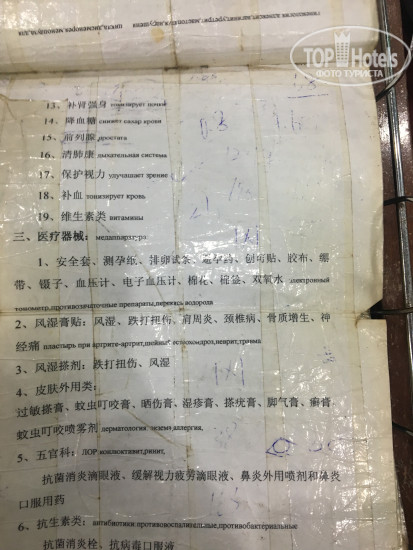 гинекология
TOP Hotels
ФОТО ТУРИСТА
13、补肾强身 тонизирует почки
14、降血糖 снижет сахар крови
15、前列腺 простата
16、清肺康 дыхательная система
17、保护视力 улучшает зрение
18、补血 тонизирует кровь
19、维生素类 витамины
三、医疗器械：
1、安全套、测孕纸、排卵试纸、避孕药、创可贴、胶布、绷
带、镊子、血压计、电子血压计、棉花、棉签、双氧水 электронный
тонометр,противозачаточные препараты,перекись водорода
2、风湿膏贴：风湿、跌打扭伤、肩周炎、颈椎病、骨质增生、神
经痛 пластырь при артрите-артрит,шейный остеохондроз,неврит,травма
3、风湿搽剂：跌打扭伤、风湿
4、皮肤外用类：
过敏搽膏、蚊虫叮咬膏、晒伤膏、湿疹膏、搽疣膏、脚气膏、癣膏
蚊虫叮咬喷雾剂 дерматология экзема аллергия,
5、五官科： ЛОР конъюктивит,ринит,
抗菌消炎滴眼液、缓解视力疲劳滴眼液、鼻炎外用喷剂和鼻炎
口服用药
6、抗生素类： антибиотики:противовоспалительные,противобактериальные
抗菌消炎栓、抗病毒口服液